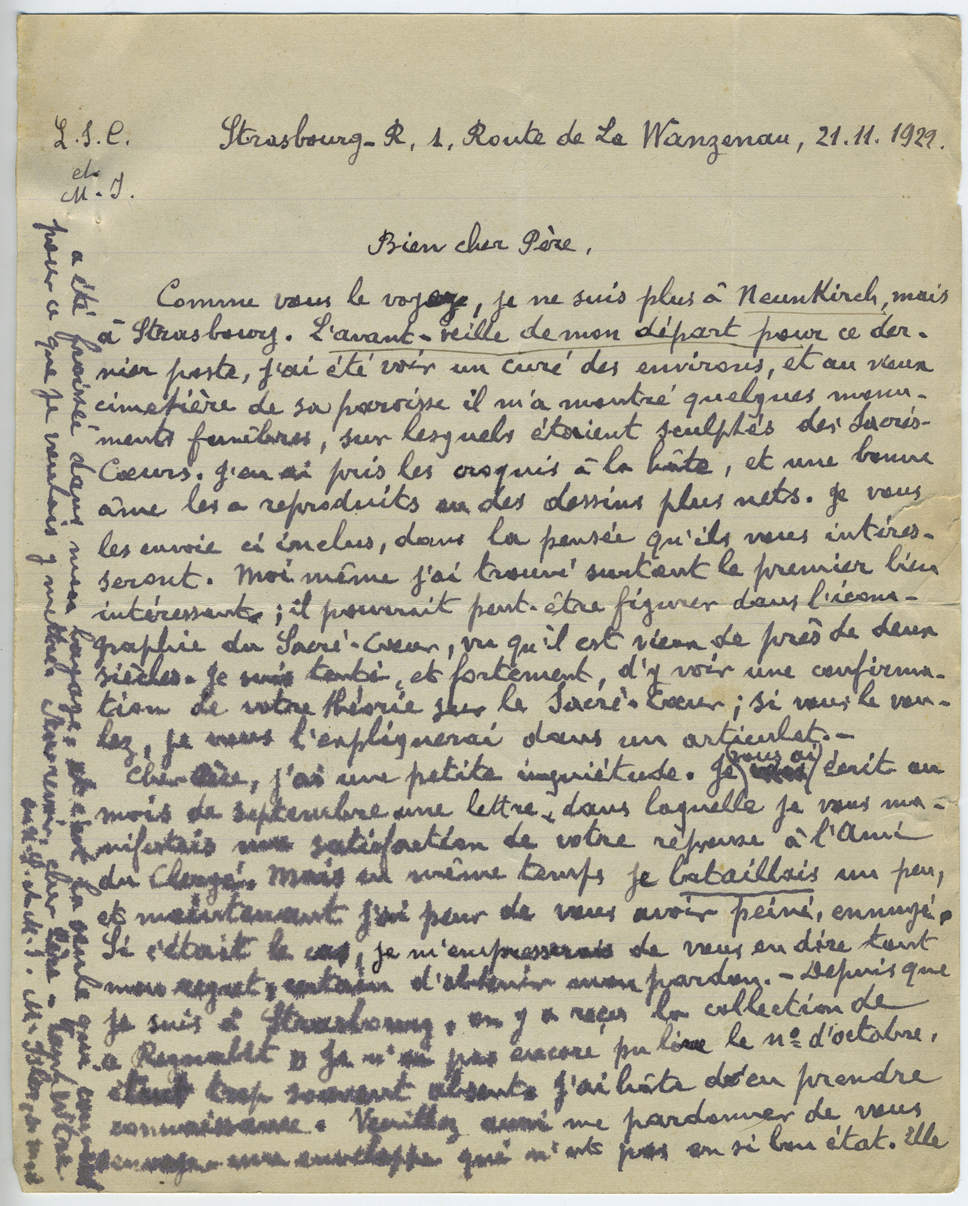 L.J.C.
et
M.J.
Strasbourg-R, 1, Route de La Wanzenau, 21.11.1922.
Bien cher Père,
Comme vous le voyez, je ne suis plus à NeunKirch, mais
à Strasbourg. L'avant-veille de mon départ pour ce der-
nier poste, j'ai été voir un curé des environs, et au vieux
cimetière de sa paroisse il m'a montré quelques monu-
ments funèbres, sur lesquels étaient sculptés des Sacrés-
Cœurs. J'en ai pris les croquis à la hâte, et une bonne
âme les a reproduits en des dessins plus nets. Je vous
les envoie ci inclus, dans la pensée qu'ils vous intéres-
seront. Moi même j'ai trouvé surtout le premier bien
intéressant ; il pourrait peut-être figurer dans l'icono-
graphie du Sacré-Cœur, vu qu'il est vieux de près de deux
siècles. Je suis tenté, et fortement, d'y voir une confirma-
tion de votre théorie sur le Sacré-Cœur ; si vous le vou-
lez, je vous l'expliquerai dans un articulet. -
Cher Père, j'ai une petite inquiétude. Je (vous ai) écrit au
mois de septembre une lettre, dans laquelle je vous ma-
nifestais ma satisfaction de votre réponse à l'Ami
du Clergé. Mais en même temps je bataillais un peu,
et maintenant j'ai peur de vous avoir peiné, ennuyé.
Si c'était le cas, je m'empresserais de vous en dire tout
mon regret, certain d'obtenir mon pardon. - Depuis que
je suis à Strasbourg, on y a reçu la collection de
"Regnabit". Je n'ai pas encore pu lire le nº d'octobre,
étant trop souvent absent. J'ai hâte d'en prendre
connaissance. Veuillez aussi me pardonner de vous
envoyer une enveloppe qui n'est pas en si bon état. Elle
a été froissé dans mon bagage, et c'est la seule qui
pour ce que je voulais y mettre. Au revoir, cher Père. Tout vôtre